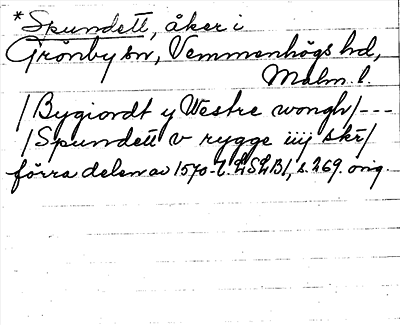 *Spundett, åker i
Grönby sn, Vemmenhögs hd,
Malm. l.
/Bygiordt y Westre wongh/---
/Spundett v rygge iiij skr/
förra delen av 1570-t. LSLB1, s. 269. orig.